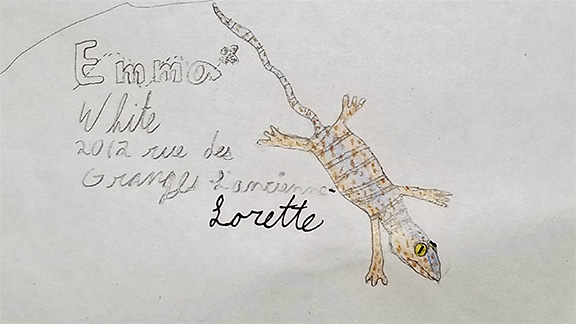 Emma
White
2012 rue des
Granges L'ancienne-
Lorette